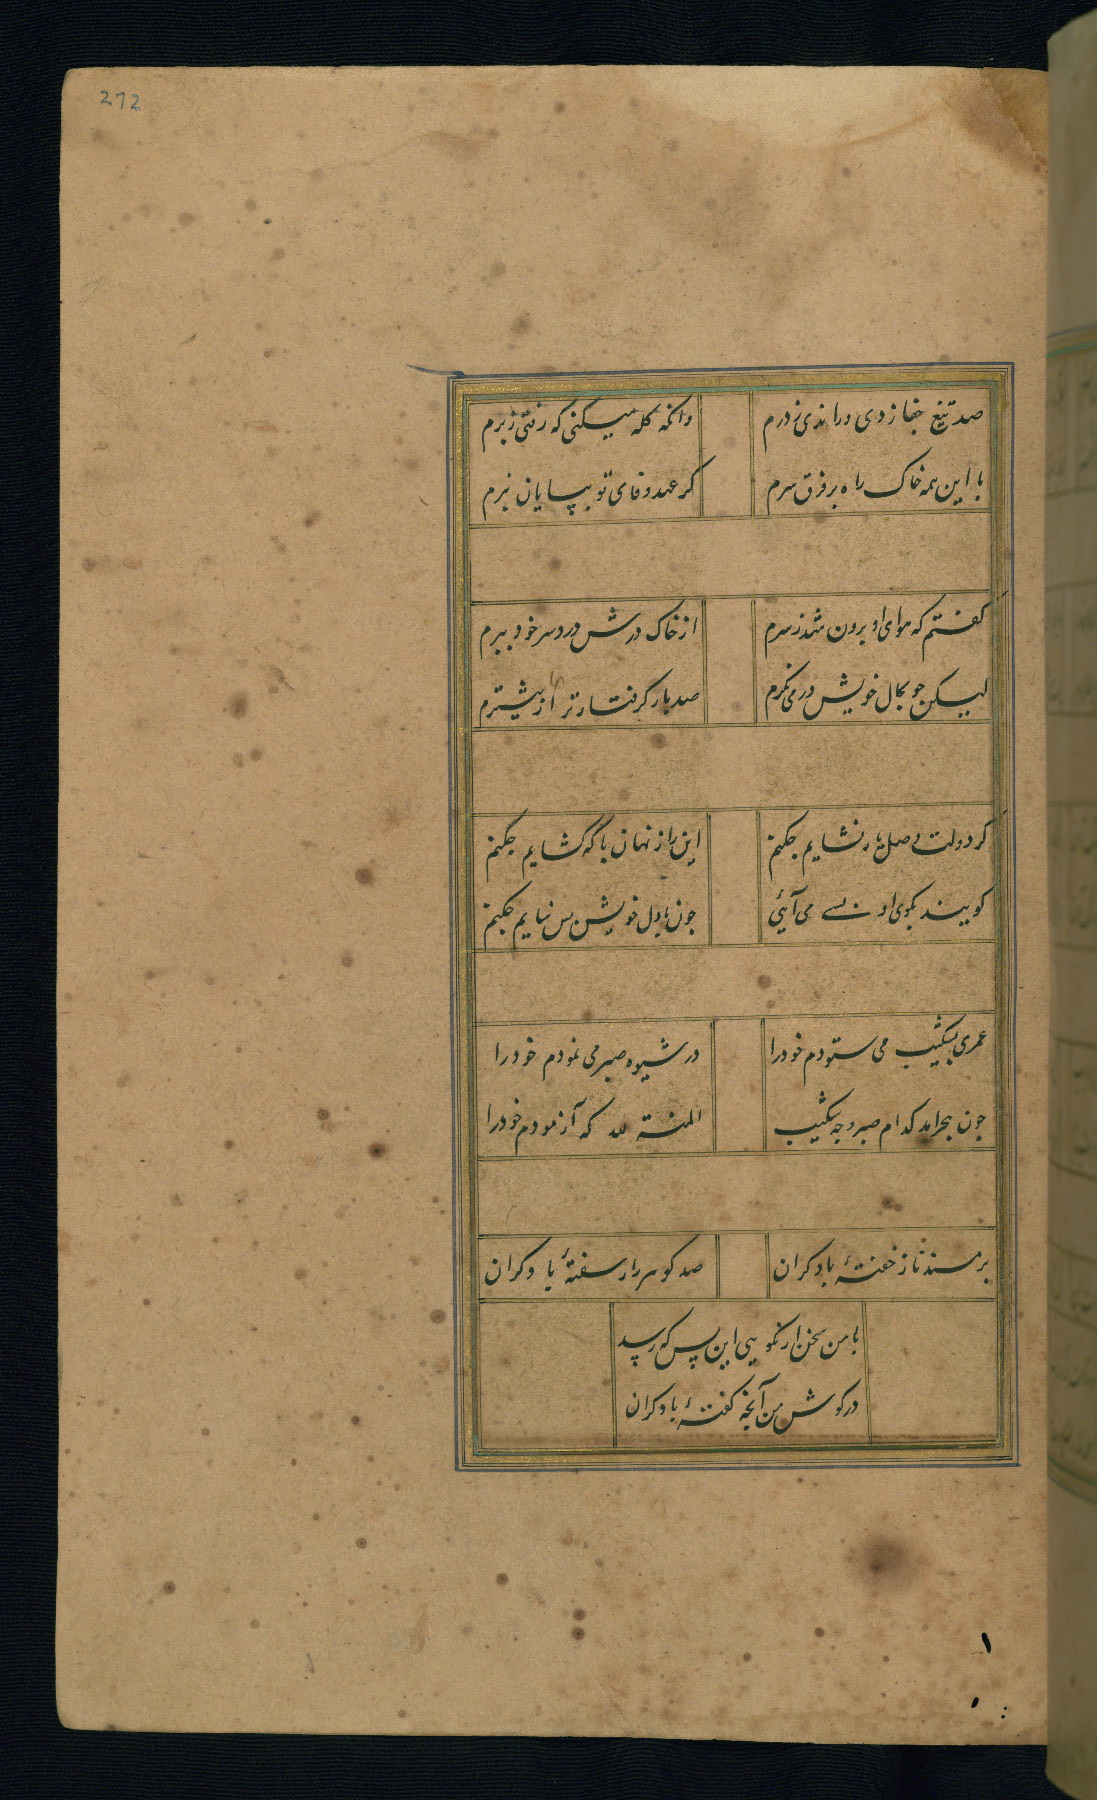 272
صد تیغ جفا زدی و راندی ز درم
وانکه کله میکنی که رفتی ز برم
با این همه خاک راه بر فرق سرم
کر عهد وفای تو بپایان نبرم
کفتم که هوای او برون شد ز سرم
از خاک درش درد سر خود ببرم
لیکن جو بحال خویش در می نکرم
صد بار کرفتارتر از بیشترم
کر دولت وصل یار نشایم جکنم
این راز نهان با که کشایم جکنم
کویند بکوی او بسے می آئی
جون با دل خویش بس نیایم جکنم
عمری بشکیب می ستودم خود را
در شیوه صبر می نمودم خود را
جون هجر امد کدام صبر و جه شکیب
المنة لله که آزمودم خود را
بر مسند ناز خفتهٔ با دکران
صد کوهر راز سفتهٔ با دکران
با من سخن ار نکویی این بس که رسد
در کوش من آنجه کفتهٔ با دکران
۱